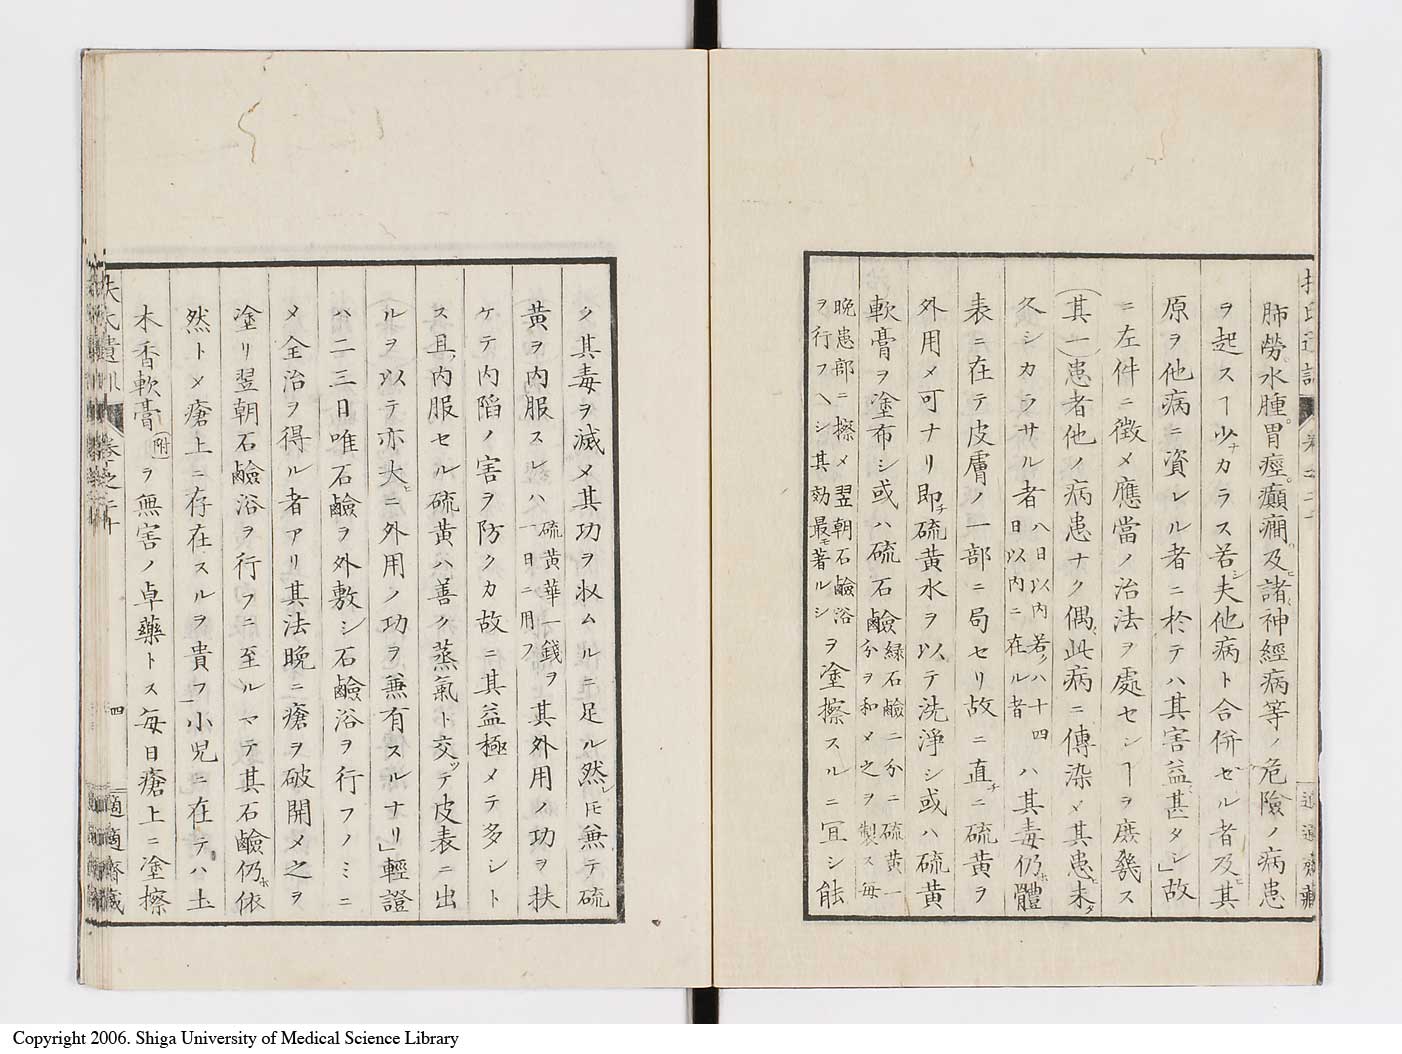 肺勞。水腫。胃痙。癲癇及ヒ諸神經病等ノ危險ノ病患
ヲ起スヿ少ナカラス若シ夫他病ト合併セル者及ヒ其
原ヲ他病ニ資レル者ニ於テハ其害益〻甚タシ」故
ニ左件ニ徴メ應當ノ治法ヲ處センヿヲ庶幾ス
(其一)患者他ノ病患ナク偶〻此病ニ傳染メ其患ヒ未タ
久シカラサル者八日以内若クハ十四日以内ニ在ル者ハ其毒仍ホ體
表ニ在テ皮膚ノ一部ニ局セリ故ニ直チニ硫黄ヲ
外用メ可ナリ即チ硫黄水ヲ以テ洗淨シ或ハ硫黄
軟膏ヲ塗布シ或ハ硫石鹼緑石鹼二分ニ硫黄一分ヲ和メ之ヲ製ス毎
晩患部ニ擦メ翌朝石鹼浴ヲ行フヘシ其効最モ著ルシヲ塗擦スルニ冝シ能
ク其毒ヲ滅メ其功ヲ収ムルニ足ル然レ𪜈兼テ硫
黄ヲ内服スレハ硫黄華一錢ヲ一日ニ用フ其外用ノ功ヲ扶
ケテ内陷ノ害ヲ防クカ故ニ其益極メテ多シト
ス且ツ内服セル硫黄ハ善ク蒸氣ト交ツテ皮表ニ出
ルヲ以テ亦大ヒニ外用ノ功ヲ兼有スルナリ」輕證
ハ二三日唯石鹼ヲ外敷シ石鹼浴ヲ行フノミニ
メ全治ヲ得ル者アリ其法晩ニ瘡ヲ破開メ之ヲ
塗リ翌朝石鹼浴ヲ行フニ至ルマテ其石鹼仍ホ依
然トメ瘡上ニ存在スルヲ貴フ」小兒ニ在テハ土
木香軟膏(附)ヲ無害ノ卓藥トス毎日瘡上ニ塗擦
卷之二十
四
適適齋藏
Copyright 2006. Shiga University of Medical Science Library